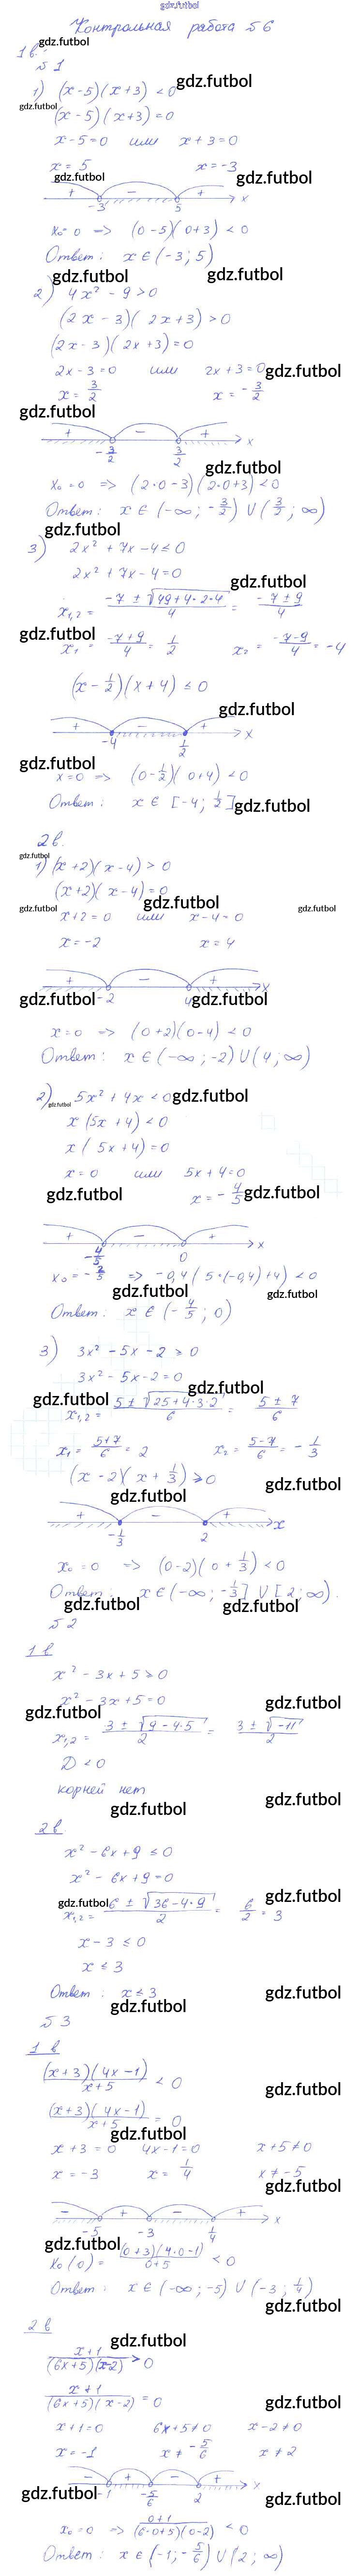 gdz.futbol
Контрольная работа №6
1в.
№1
1) (x-5)(x+3) < 0
(x-5)(x+3) = 0
x-5=0 или x+3=0
x = 5 x = -3
+ - + x
-3 5
x₀=0 => (0-5)(0+3) < 0
Ответ: x ∈ (-3; 5)
2) 4x² - 9 > 0
(2x-3)(2x+3) > 0
(2x-3)(2x+3) = 0
2x-3=0 или 2x+3=0
x = 3/2 x = -3/2
+ - + x
-3/2 3/2
x₀=0 => (2·0-3)(2·0+3) < 0
Ответ: x ∈ (-∞; -3/2) ∪ (3/2; ∞)
3) 2x² + 7x - 4 ≤ 0
2x² + 7x - 4 = 0
x₁,₂ = (-7 ± √(49+4·2·4))/4 = (-7 ± 9)/4
x₁ = (-7+9)/4 = 1/2 x₂ = (-7-9)/4 = -4
(x - 1/2)(x+4) ≤ 0
+ - + x
-4 1/2
x=0 => (0-1/2)(0+4) < 0
Ответ: x ∈ [-4; 1/2]
2в.
1) (x+2)(x-4) > 0
(x+2)(x-4) = 0
x+2=0 или x-4=0
x=-2 x=4
+ - + x
-2 4
x=0 => (0+2)(0-4) < 0
Ответ: x ∈ (-∞; -2) ∪ (4; ∞)
2) 5x² + 4x < 0
x(5x+4) < 0
x(5x+4) = 0
x=0 или 5x+4=0
x = -4/5
+ - + x
-4/5 0
x₀ = -2/5 => -0,4(5·(-0,4)+4) < 0
Ответ: x ∈ (-4/5; 0)
3) 3x² - 5x - 2 ≥ 0
3x² - 5x - 2 = 0
x₁,₂ = (5 ± √(25+4·3·2))/6 = (5 ± 7)/6
x₁ = (5+7)/6 = 2 x₂ = (5-7)/6 = -1/3
(x-2)(x+1/3) ≥ 0
+ - + x
-1/3 2
x₀=0 => (0-2)(0+1/3) < 0
Ответ: x ∈ (-∞; -1/3] ∪ [2; ∞).
№2
1в
x² - 3x + 5 ≥ 0
x² - 3x + 5 = 0
x₁,₂ = (3 ± √(9-4·5))/2 = (3 ± √-11)/2
D < 0
корней нет
2в.
x² - 6x + 9 ≤ 0
x² - 6x + 9 = 0
x₁,₂ = (6 ± √(36-4·9))/2 = 6/2 = 3
x-3 ≤ 0
x ≤ 3
Ответ: x ≤ 3
№3
1в
(x+3)(4x-1)/(x+5) < 0
(x+3)(4x-1)/(x+5) = 0
x+3=0 4x-1=0 x+5≠0
x=-3 x=1/4 x≠-5
- + - + x
-5 -3 1/4
x₀(0) = (0+3)(4·0-1)/(0+5) < 0
Ответ: x ∈ (-∞; -5) ∪ (-3; 1/4)
2в
(x+1)/((6x+5)(x-2)) > 0
(x+1)/((6x+5)(x-2)) = 0
x+1=0 6x+5≠0 x-2≠0
x=-1 x≠-5/6 x≠2
- + - + x
-1 -5/6 2
x₀=0 => (0+1)/((6·0+5)(0-2)) < 0
Ответ: x ∈ (-1; -5/6) ∪ (2; ∞)